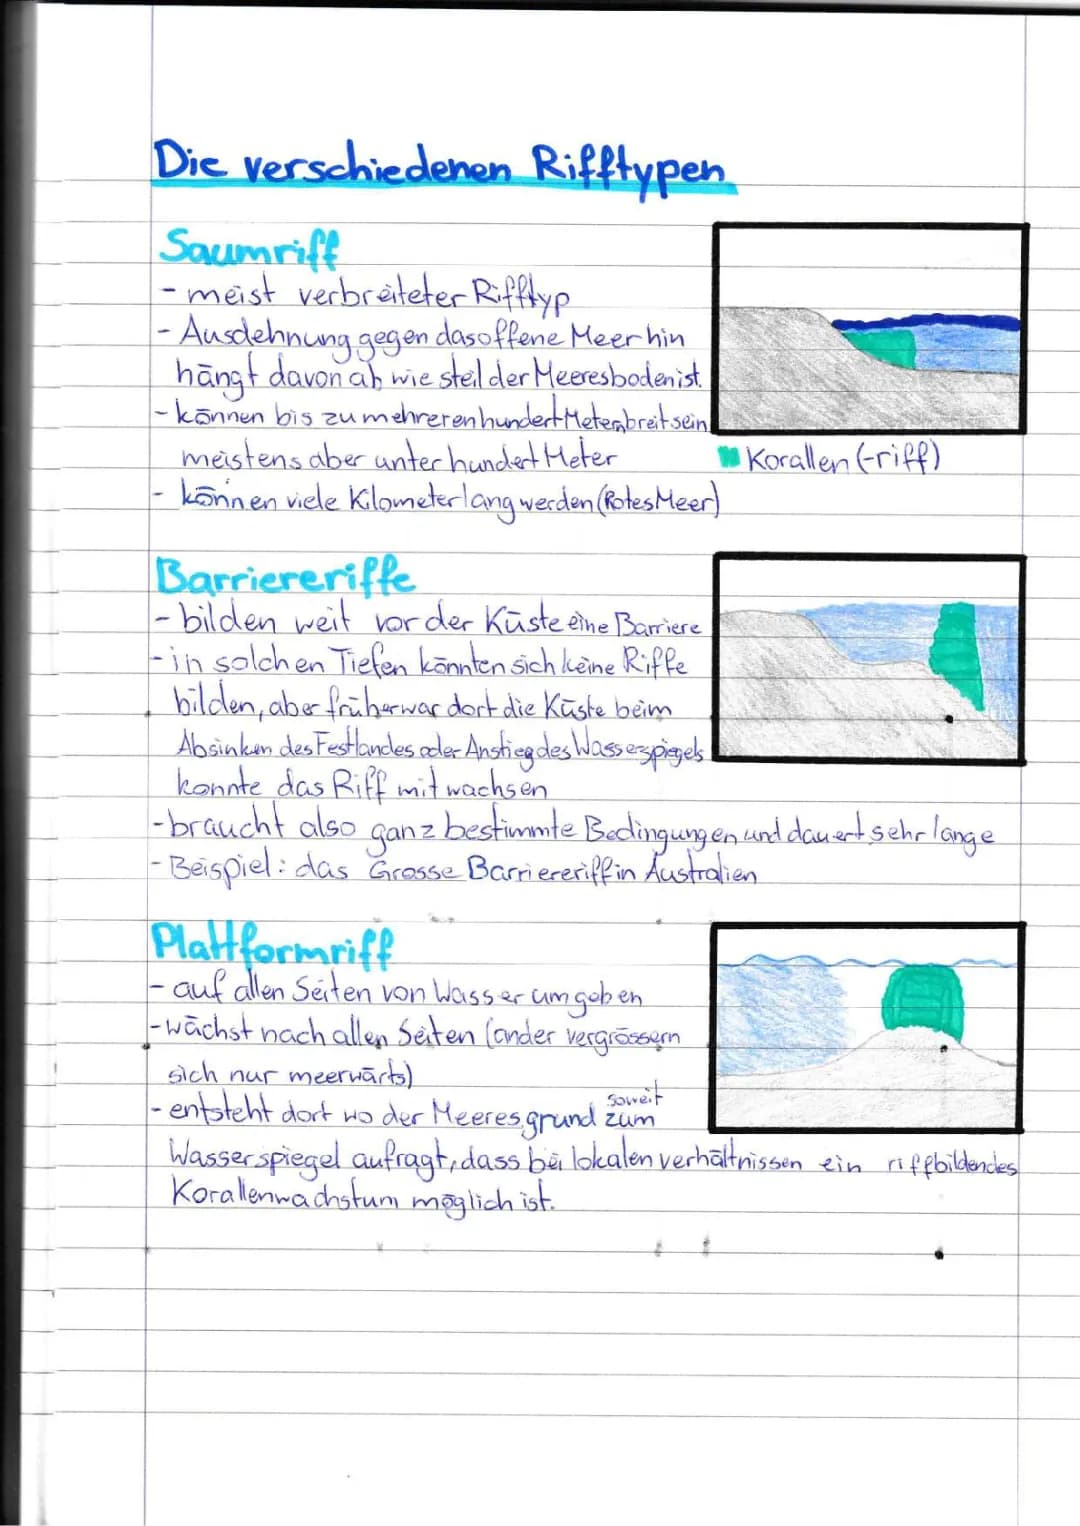 Die verschiedenen Rifftypen
Saumriff
- meist verbreiteter Rifftyp
- Ausdehnung gegen das offene Meer hin
hängt davon ab wie steil der Meeresboden ist.
- können bis zu mehreren hundert Metern breit sein,
meistens aber unter hundert Meter
Korallen (-riff)
- können viele Kilometer lang werden (Rotes Meer)
Barriereriffe
- bilden weit vor der Küste eine Barriere
- in solchen Tiefen könnten sich keine Riffe
bilden, aber früher war dort die Küste beim
Absinken des Festlandes oder Anstieg des Wasserspiegels
konnte das Riff mitwachsen
- braucht also ganz bestimmte Bedingungen und dauert sehr lange
- Beispiel: das Grosse Barriereriff in Australien
Plattformriff
- auf allen Seiten von Wasser umgeben
- wächst nach allen Seiten (ander vergrössern
sich nur meerwärts)
- entsteht dort wo der Meeresgrund soweit zum
Wasserspiegel aufragt, dass bei lokalen verhältnissen ein riffbildendes
Korallenwachstum möglich ist.